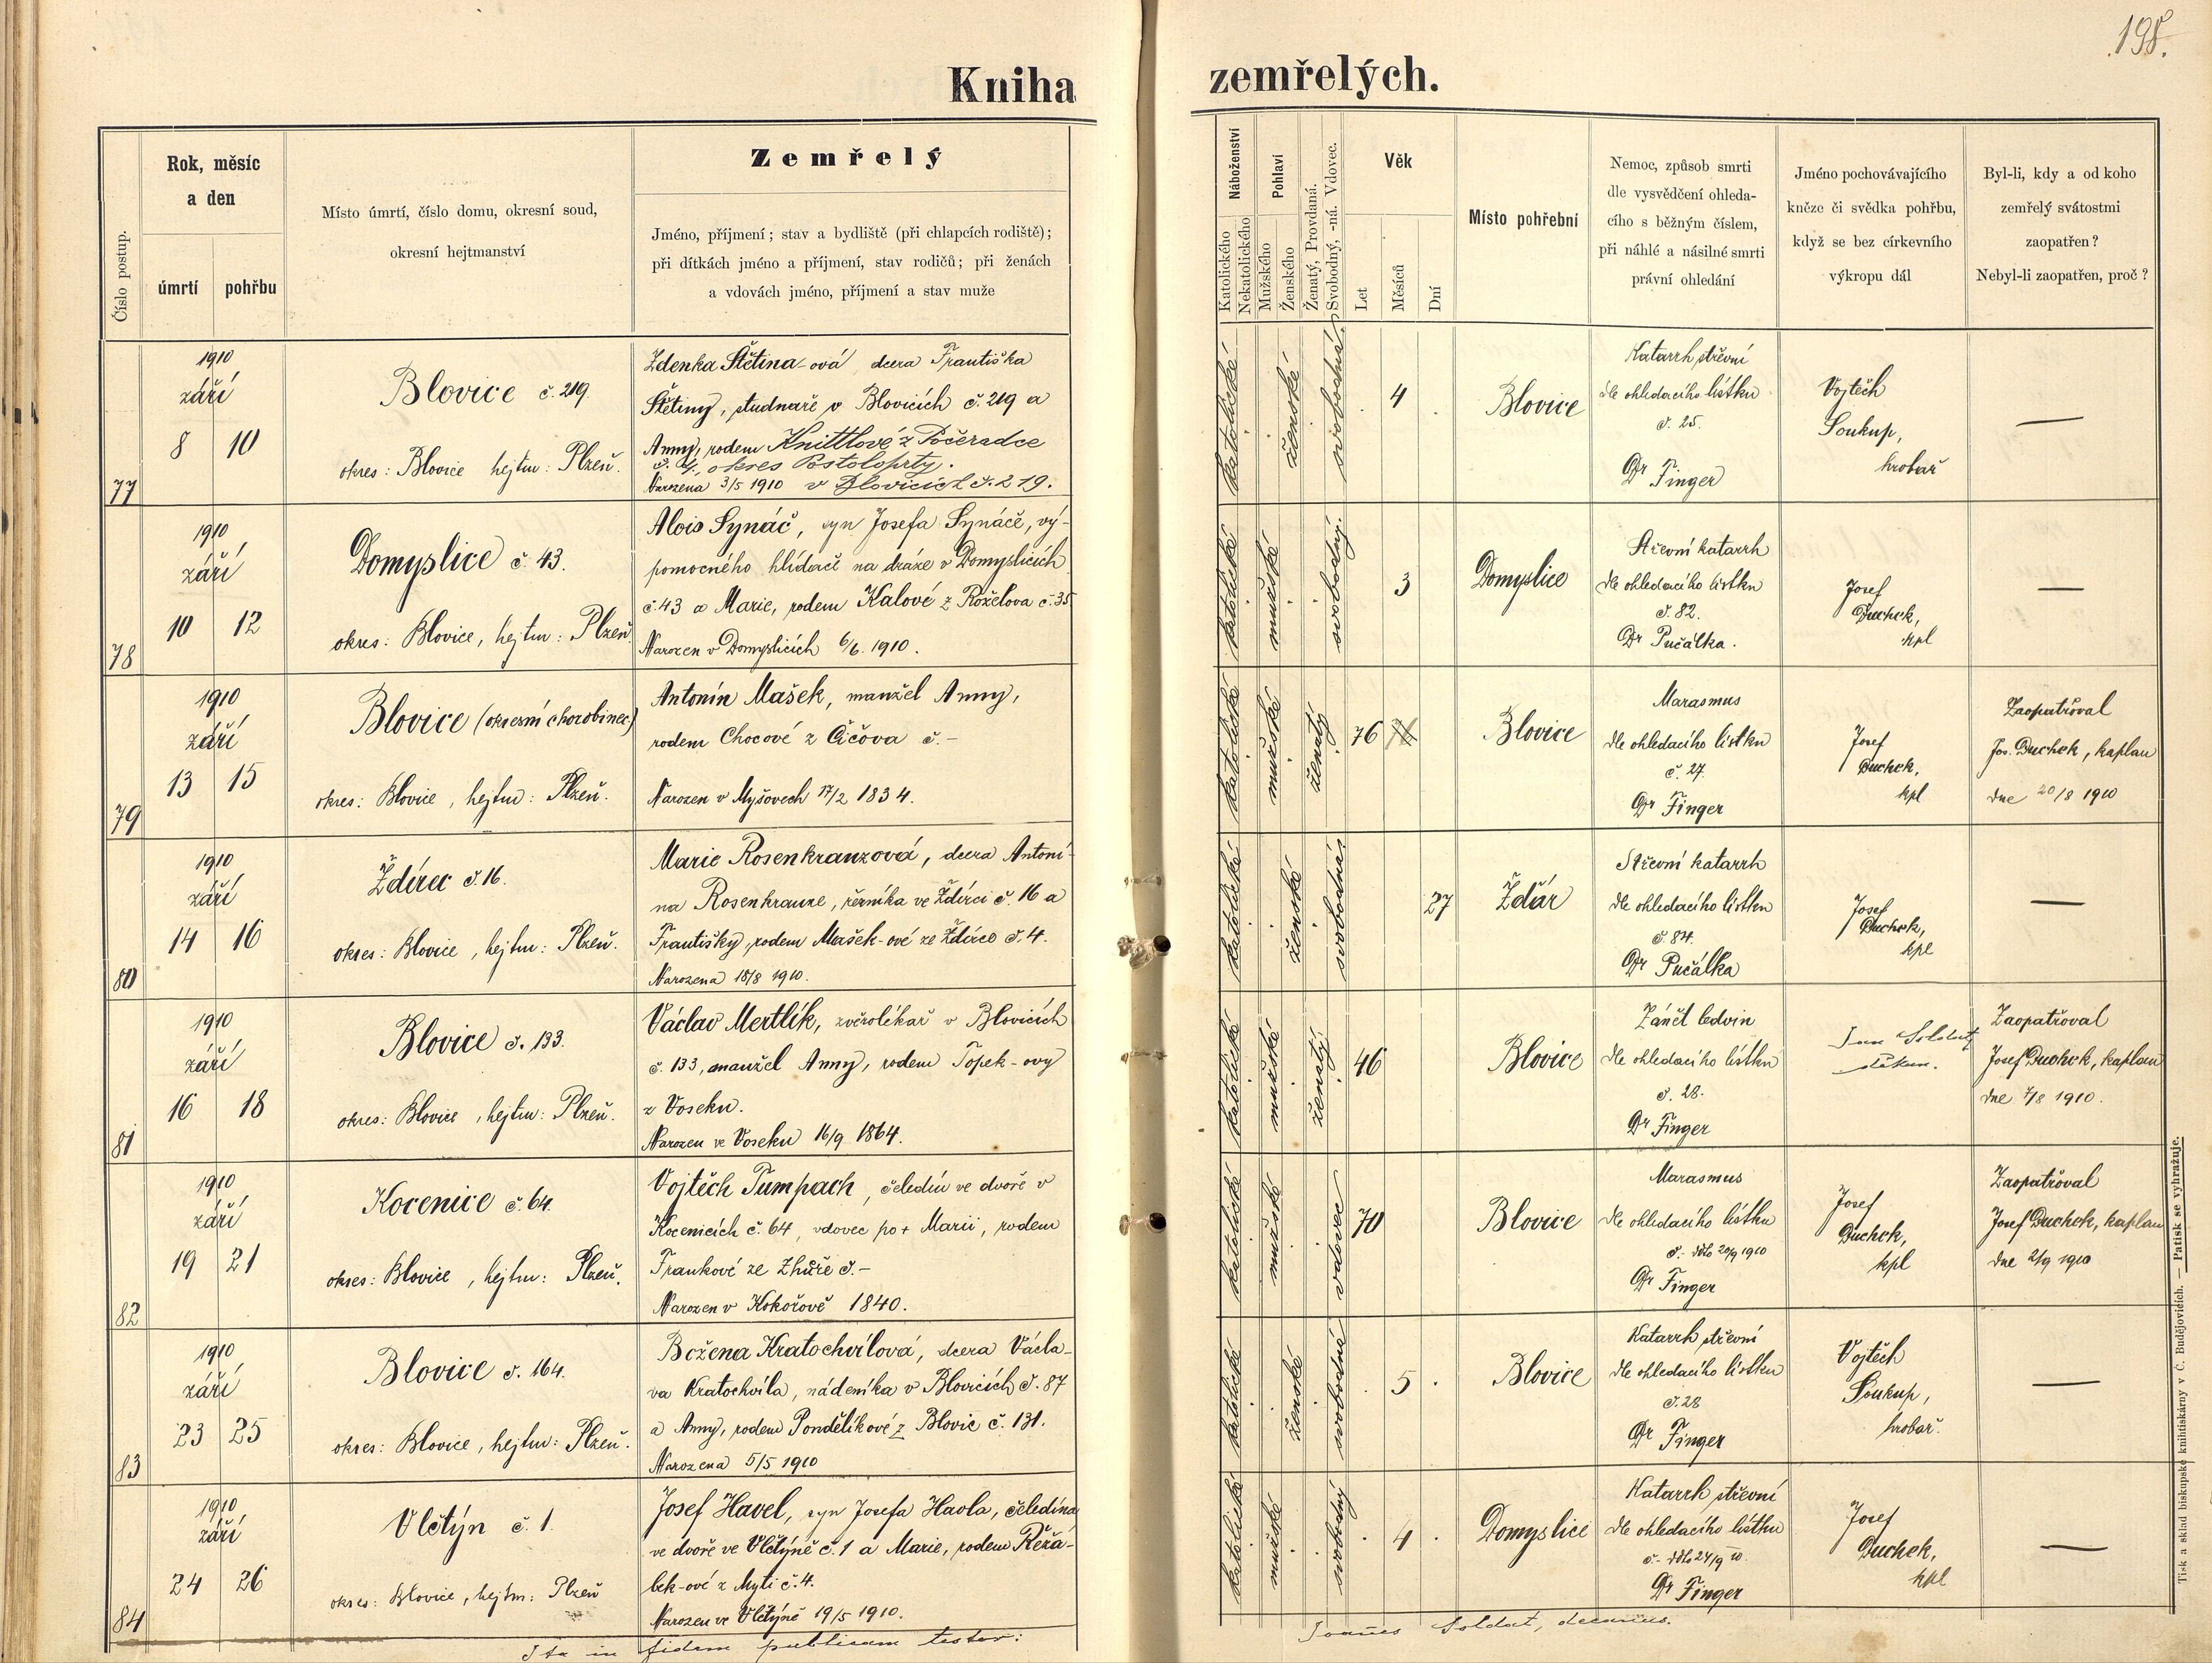 198.
Kniha zemřelých.
Číslo postup.
Rok, měsíc
a den
úmrtí
pohřbu
Místo úmrtí, číslo domu, okresní soud,
okresní hejtmanství
Zemřelý
Jméno, příjmení; stav a bydliště (při chlapcích rodiště);
při dítkách jméno a příjmení, stav rodičů; při ženách
a vdovách jméno, příjmení a stav muže
Náboženství
Katolického
Nekatolického
Pohlaví
Mužského
Ženského
Ženatý, Provdaná.
Svobodný, -ná. Vdovec.
Věk
Let
Měsíců
Dní
Místo pohřební
Nemoc, způsob smrti
dle vysvědčení ohleda-
cího s běžným číslem,
při náhlé a násilné smrti
právní ohledání
Jméno pochovávajícího
kněze či svědka pohřbu,
když se bez církevního
výkropu dál
Byl-li, kdy a od koho
zemřelý svátostmi
zaopatřen?
Nebyl-li zaopatřen, proč?
77
1910
září
8
10
Blovice č. 219.
okres: Blovice hejtm: Plzeň.
Zdenka Štětina-ová, dcera Františka
Štětiny, studnaře v Blovicích č. 219 a
Anny, rodem Knittlové z Počeradce
č. 4, okres Postoloprty.
Narozena 3/5 1910 v Blovicích č. 219.
katolické
ženské
svobodná
4
Blovice
Katarrh střevní
dle ohledacího lístku
č. 25.
Dr Finger
Vojtěch
Soukup,
hrobař
—
78
1910
září
10
12
Domyslice č 43.
okres: Blovice, hejtm: Plzeň
Alois Synáč, syn Josefa Synáče, vý-
pomocného hlídače na dráze v Domyslicích
č. 43 a Marie, rodem Kalové z Roželova č. 35
Narozen v Domyslicích 6/6. 1910.
katolické
mužské
svobodný.
3
Domyslice
Střevní katarrh
dle ohledacího lístku
č. 82.
Dr Pučálka.
Josef
Duchek,
kpl
—
79
1910
září
13
15
Blovice (okresní chorobinec)
okres: Blovice, hejtm: Plzeň.
Antonín Mašek, manžel Anny,
rodem Chocové z Čičova č. -
Narozen v Myšovech 17/2 1834.
katolické
mužské
ženatý
76
Blovice
Marasmus
dle ohledacího lístku
č. 27.
Dr Finger
Josef
Duchek,
kpl
Zaopatřoval
Jos. Duchek, kaplan
dne 20/8 1910
80
1910
září
14
16
Ždírec č. 16.
okres: Blovice, hejtm: Plzeň.
Marie Rosenkranzová, dcera Antoní-
na Rosenkranze, řezníka ve Ždírci č. 16 a
Františky, rodem Mašek-ové ze Ždírce č. 4.
Narozena 18/8 1910.
katolické
ženské
svobodná
27
Ždár
Střevní katarrh
dle ohledacího lístku
č. 84.
Dr Pučálka
Josef
Duchek,
kpl
—
81
1910
září
16
18
Blovice č. 133.
okres: Blovice, hejtm: Plzeň.
Václav Mertlík, zvěrolékař v Blovicích
č. 133, manžel Anny, rodem Topek-ovy
z Voseku.
Narozen ve Voseku 16/9 1864.
katolické
mužské
ženatý
46
Blovice
Zánět ledvin
dle ohledacího lístku
č. 28.
Dr Finger
Jan Soldát
děkan.
Zaopatřoval
Josef Duchek, kaplan
dne 7/8 1910.
82
1910
září
19
21
Kocenice č. 64.
okres: Blovice, hejtm: Plzeň.
Vojtěch Pumpach, čeledín ve dvoře v
Kocenicích č. 64, vdovec po + Marii, rodem
Frankové ze Zhůře č. -
Narozen v Kokořově 1840.
katolické
mužské
vdovec
70
Blovice
Marasmus
dle ohledacího lístku
č. - ddto 20/9 1910
Dr Finger
Josef
Duchek,
kpl
Zaopatřoval
Josef Duchek, kaplan
dne 2/9 1910
83
1910
září
23
25
Blovice č. 164.
okres: Blovice, hejtm: Plzeň.
Božena Kratochvílová, dcera Václa-
va Kratochvíla, nádeníka v Blovicích č. 87
a Anny, rodem Pondělíkové z Blovic č. 131.
Narozena 5/5 1910
katolické
ženské
svobodná
5
Blovice
Katarrh střevní
dle ohledacího lístku
č. 28
Dr Finger
Vojtěch
Soukup,
hrobař.
—
84
1910
září
24
26
Vlčtýn č. 1.
okres: Blovice, hejtm: Plzeň
Josef Havel, syn Josefa Havla, čeledína
ve dvoře ve Vlčtýně č. 1 a Marie, rodem Řežá-
bek-ové z Mýti č. 4.
Narozen ve Vlčtýně 19/5 1910.
katolické
mužské
svobodný
4
Domyslice
Katarrh střevní
dle ohledacího lístku
č. - ddto 24/9 10.
Dr Finger
Josef
Duchek,
kpl
—
Ita in fidem publicam testor:
Joannes Soldat, decanus.
Tisk a sklad biskupské knihtiskárny v Č. Budějovicích. — Patisk se vyhražuje.